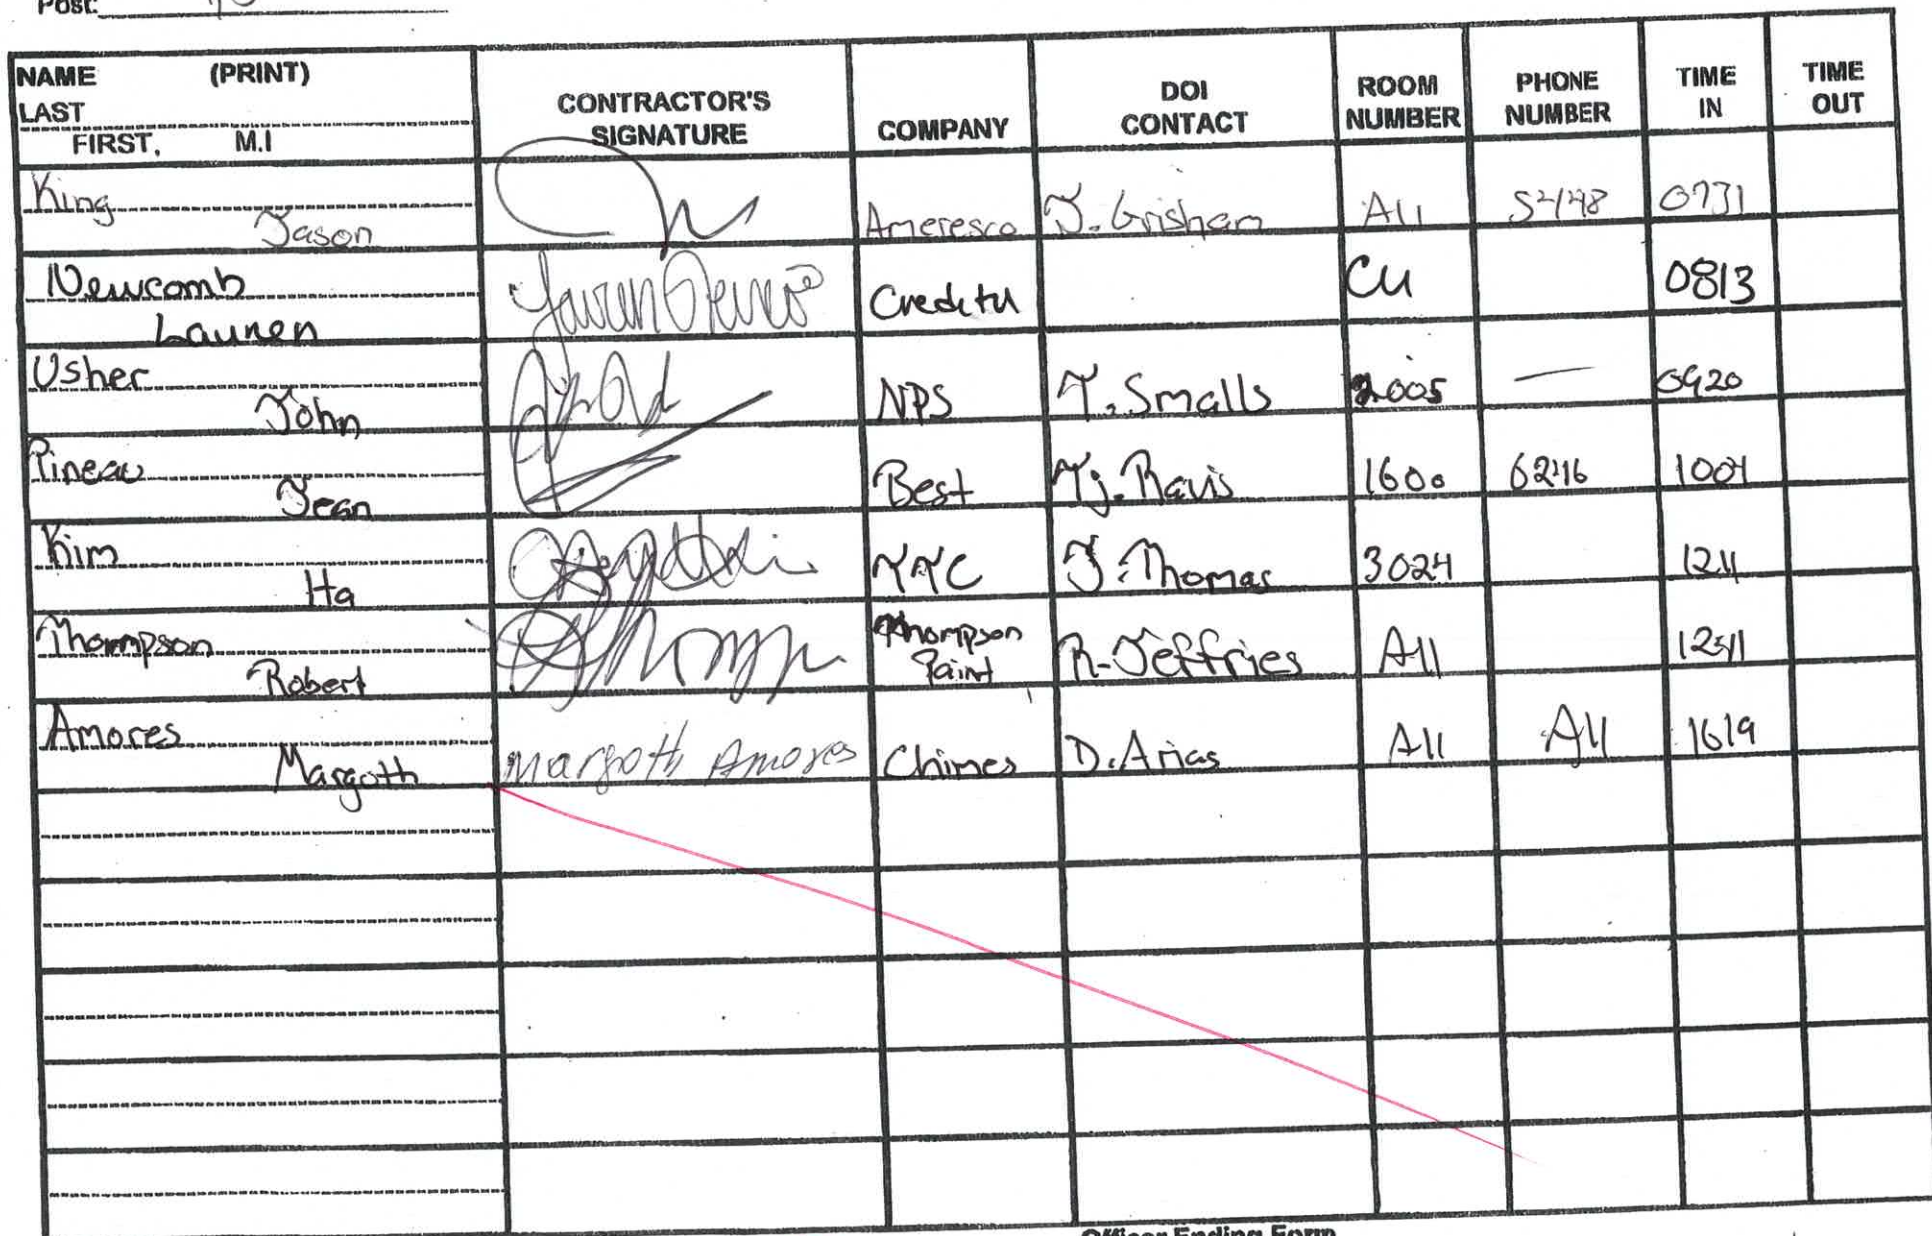 Post:
NAME (PRINT)
LAST
FIRST, M.I
CONTRACTOR'S
SIGNATURE
COMPANY
DOI
CONTACT
ROOM
NUMBER
PHONE
NUMBER
TIME
IN
TIME
OUT
King
Jason
Ameresco
J. Grisham
All
0731
Newcomb
Lauren
Credit U
CU
0813
Usher
John
NPS
T. Smalls
2005
—
0920
Pineau
Jean
Best
1600
6246
1001
Kim
Ha
J. Thomas
3024
1211
Thompson
Robert
Thompson
Paint
R. Jeffries
All
1241
Amores
Margoth
Margoth Amores
Chimes
D. Arias
All
All
1619
Officer Ending Form